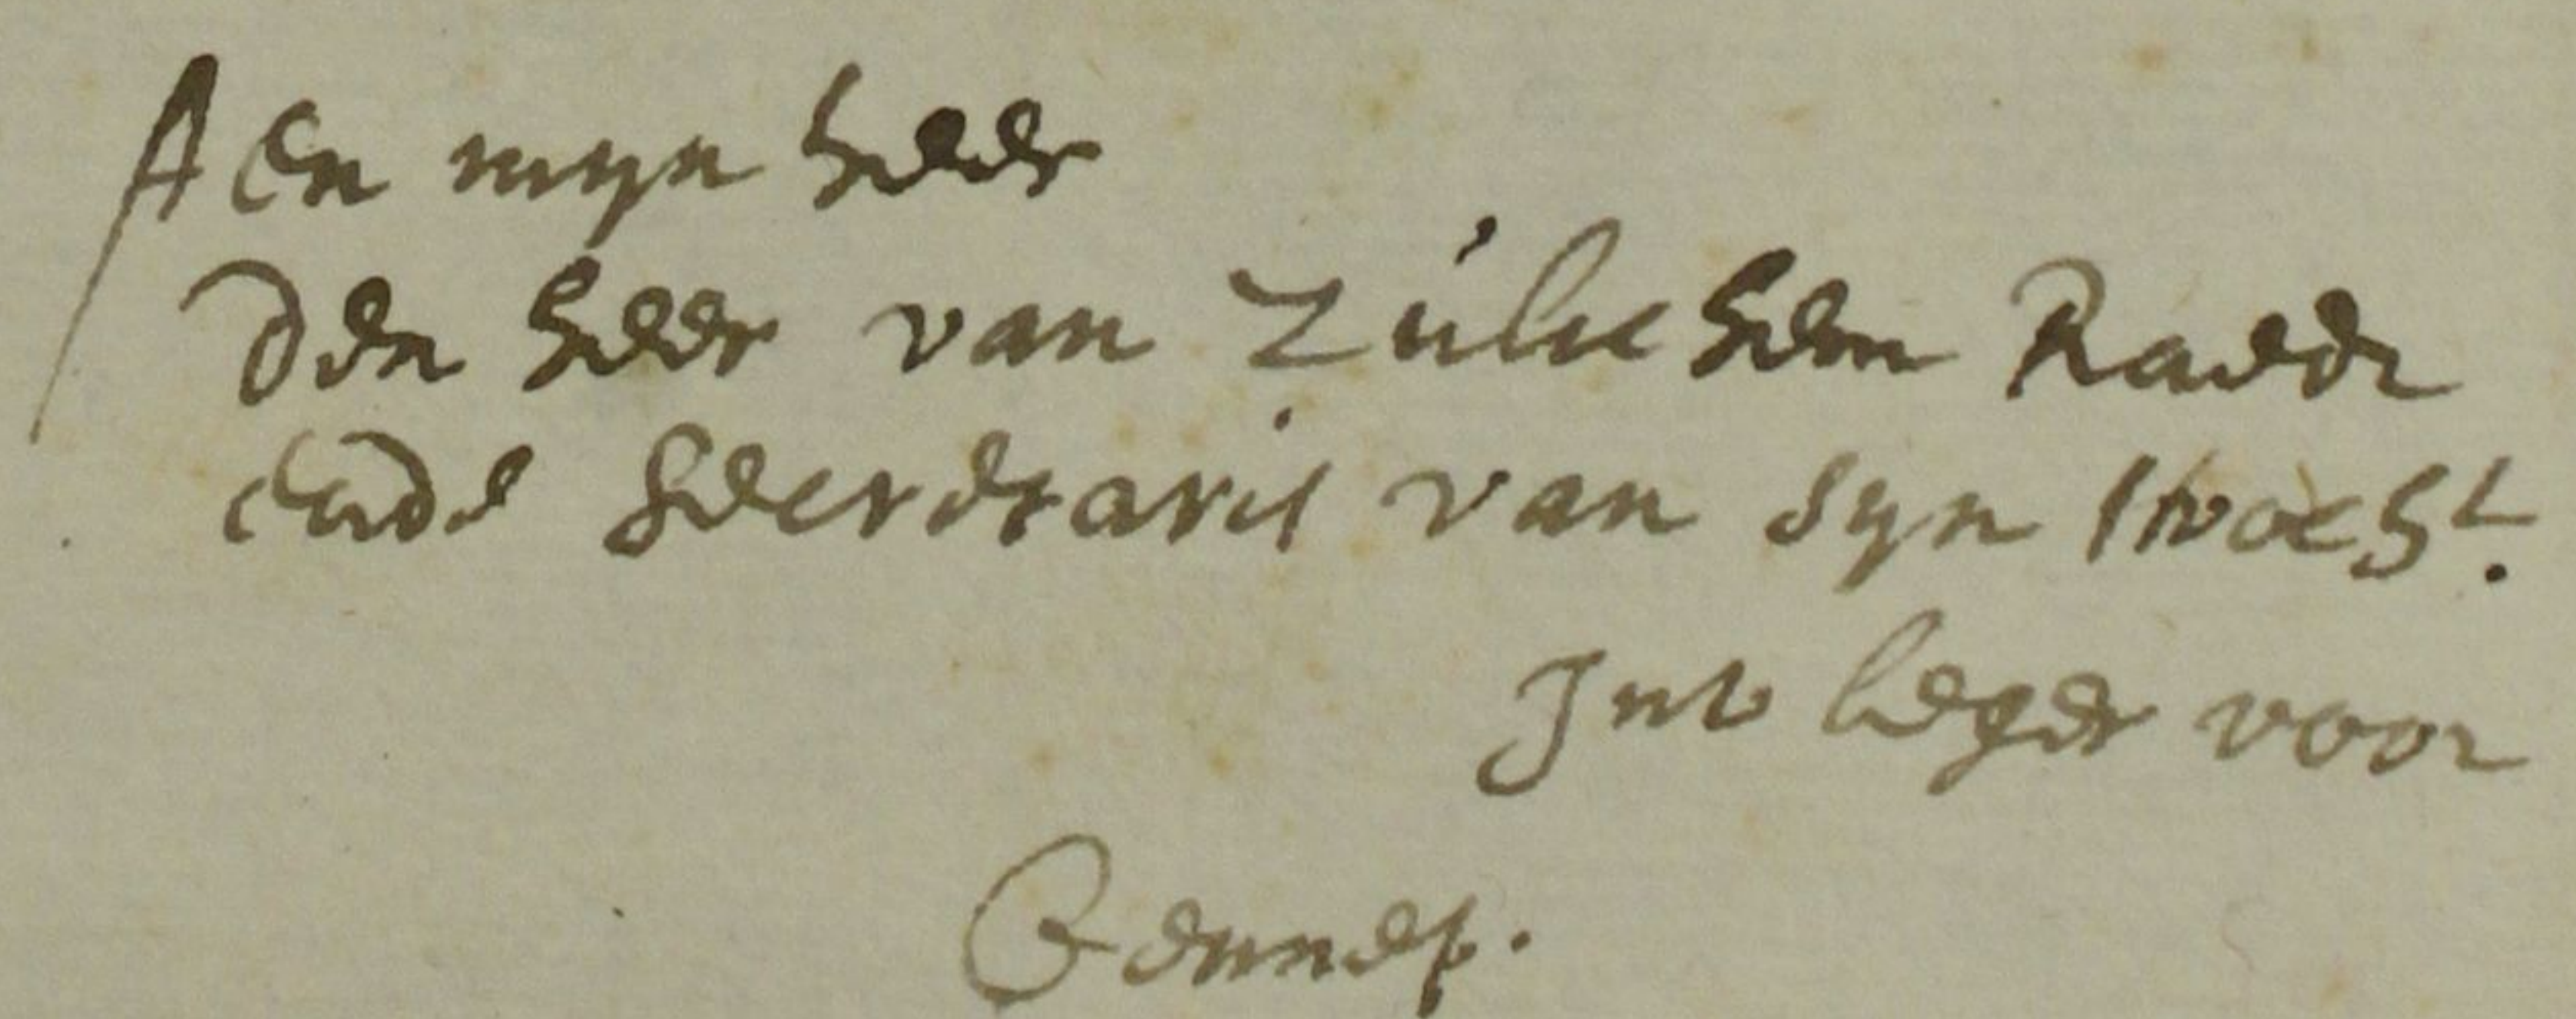 Aen myn heer
den heer van Zulichem Raedt
ende Secretaris van syn Hoocht.
Int leger voor
Gennep.